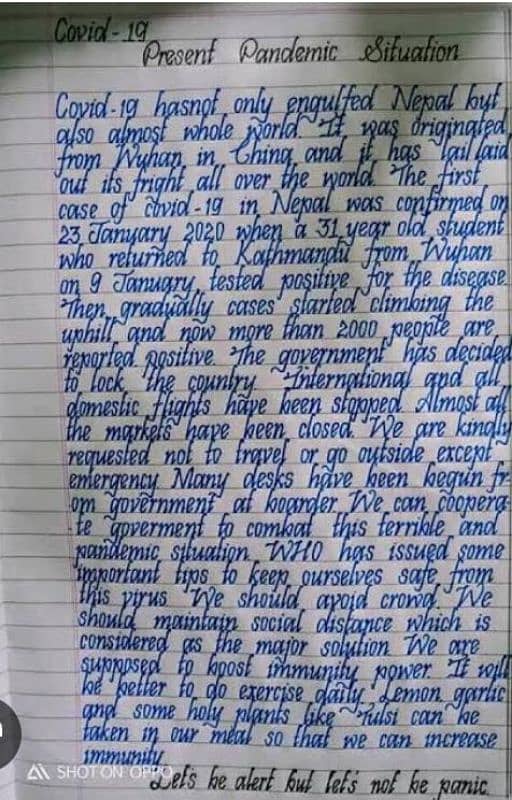 Covid-19
Present Pandemic Situation
Covid-19 hasnot only engulfed Nepal but
also almost whole world. It was originated
from Wuhan in China and it has lail laid
out its fright all over the world. The first
case of covid-19 in Nepal was confirmed on
23 January 2020 when a 31 year old student
who returned to Kathmandu from Wuhan
on 9 January, tested positive for the disease.
Then gradually cases started climbing the
uphill and now more than 2000 people are
reported positive. The government has decided
to lock the country. International and all
domestic flights have been stopped. Almost all
the markets have been closed. We are kindly
requested not to travel or go outside except
emergency. Many desks have been begun fr-
om government at boarder. We can coopera-
te goverment to combat this terrible and
pandemic situation. WHO has issued some
important tips to keep ourselves safe from
this virus. We should avoid crowd. We
should maintain social distance which is
considered as the major solution. We are
supposed to boost immunity power. It will
be better to do exercise daily. Lemon, garlic
and some holy plants like Tulsi can be
taken in our meal so that we can increase
immunity.
SHOT ON OPPO
Let's be alert but let's not be panic.